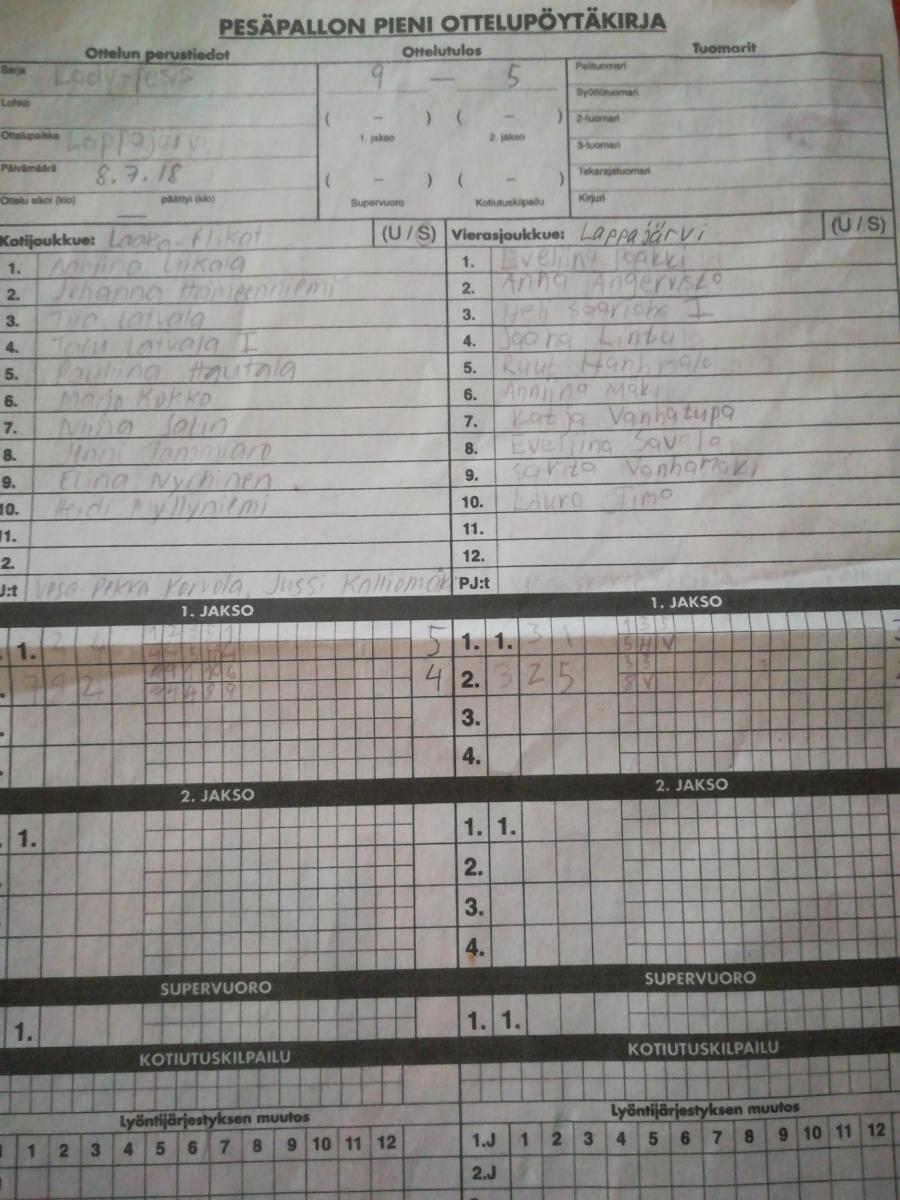 PESÄPALLON PIENI OTTELUPÖYTÄKIRJA
Ottelun perustiedot
Ottelutulos
Tuomarit
Sarja Lady-Pesis
Lohko
Ottelupaikka Lappajärvi
Päivämäärä 8.7.18
Ottelu alkoi (klo) päättyi (klo)
9 – 5
( – ) ( – )
1. jakso 2. jakso
( – ) ( – )
Supervuoro Kotiutuskilpailu
Pelituomari
Syöttötuomari
2-tuomari
3-tuomari
Takarajatuomari
Kirjuri
Kotijoukkue: (U / S)
1. Anniina Liikala
2. Johanna Hämeenniemi
3. Tiia Latvala
4. Taru Latvala I
5. Pauliina Hautala
6. Marjo Kokko
7. Niina Salin
8. Jenni Tammiaro
9. Elina Nyrhinen
10. Heidi Myllyniemi
11.
2.
J:t Vesa-Pekka Korvola, Jussi Kalliomäk
Vierasjoukkue: Lappajärvi (U / S)
1. Eveliina Jaakki
2. Anna Angervisto
3. Heli I
4. Jaana Lintu
5. Ruut
6. Anniina Mäki
7. Katja Vanhatupa
8. Eveliina Savela
9. Sarita Vanhamäki
10. Laura Timo
11.
12.
PJ:t
1. JAKSO
1. 2 4 5
7 8 2 4
2. JAKSO
1.
SUPERVUORO
1.
KOTIUTUSKILPAILU
Lyöntijärjestyksen muutos
1 2 3 4 5 6 7 8 9 10 11 12
1. JAKSO
1. 1. 3 1
2. 3 2 5
3.
4.
2. JAKSO
1. 1.
2.
3.
4.
SUPERVUORO
1. 1.
KOTIUTUSKILPAILU
Lyöntijärjestyksen muutos
1.J 1 2 3 4 5 6 7 8 9 10 11 12
2.J